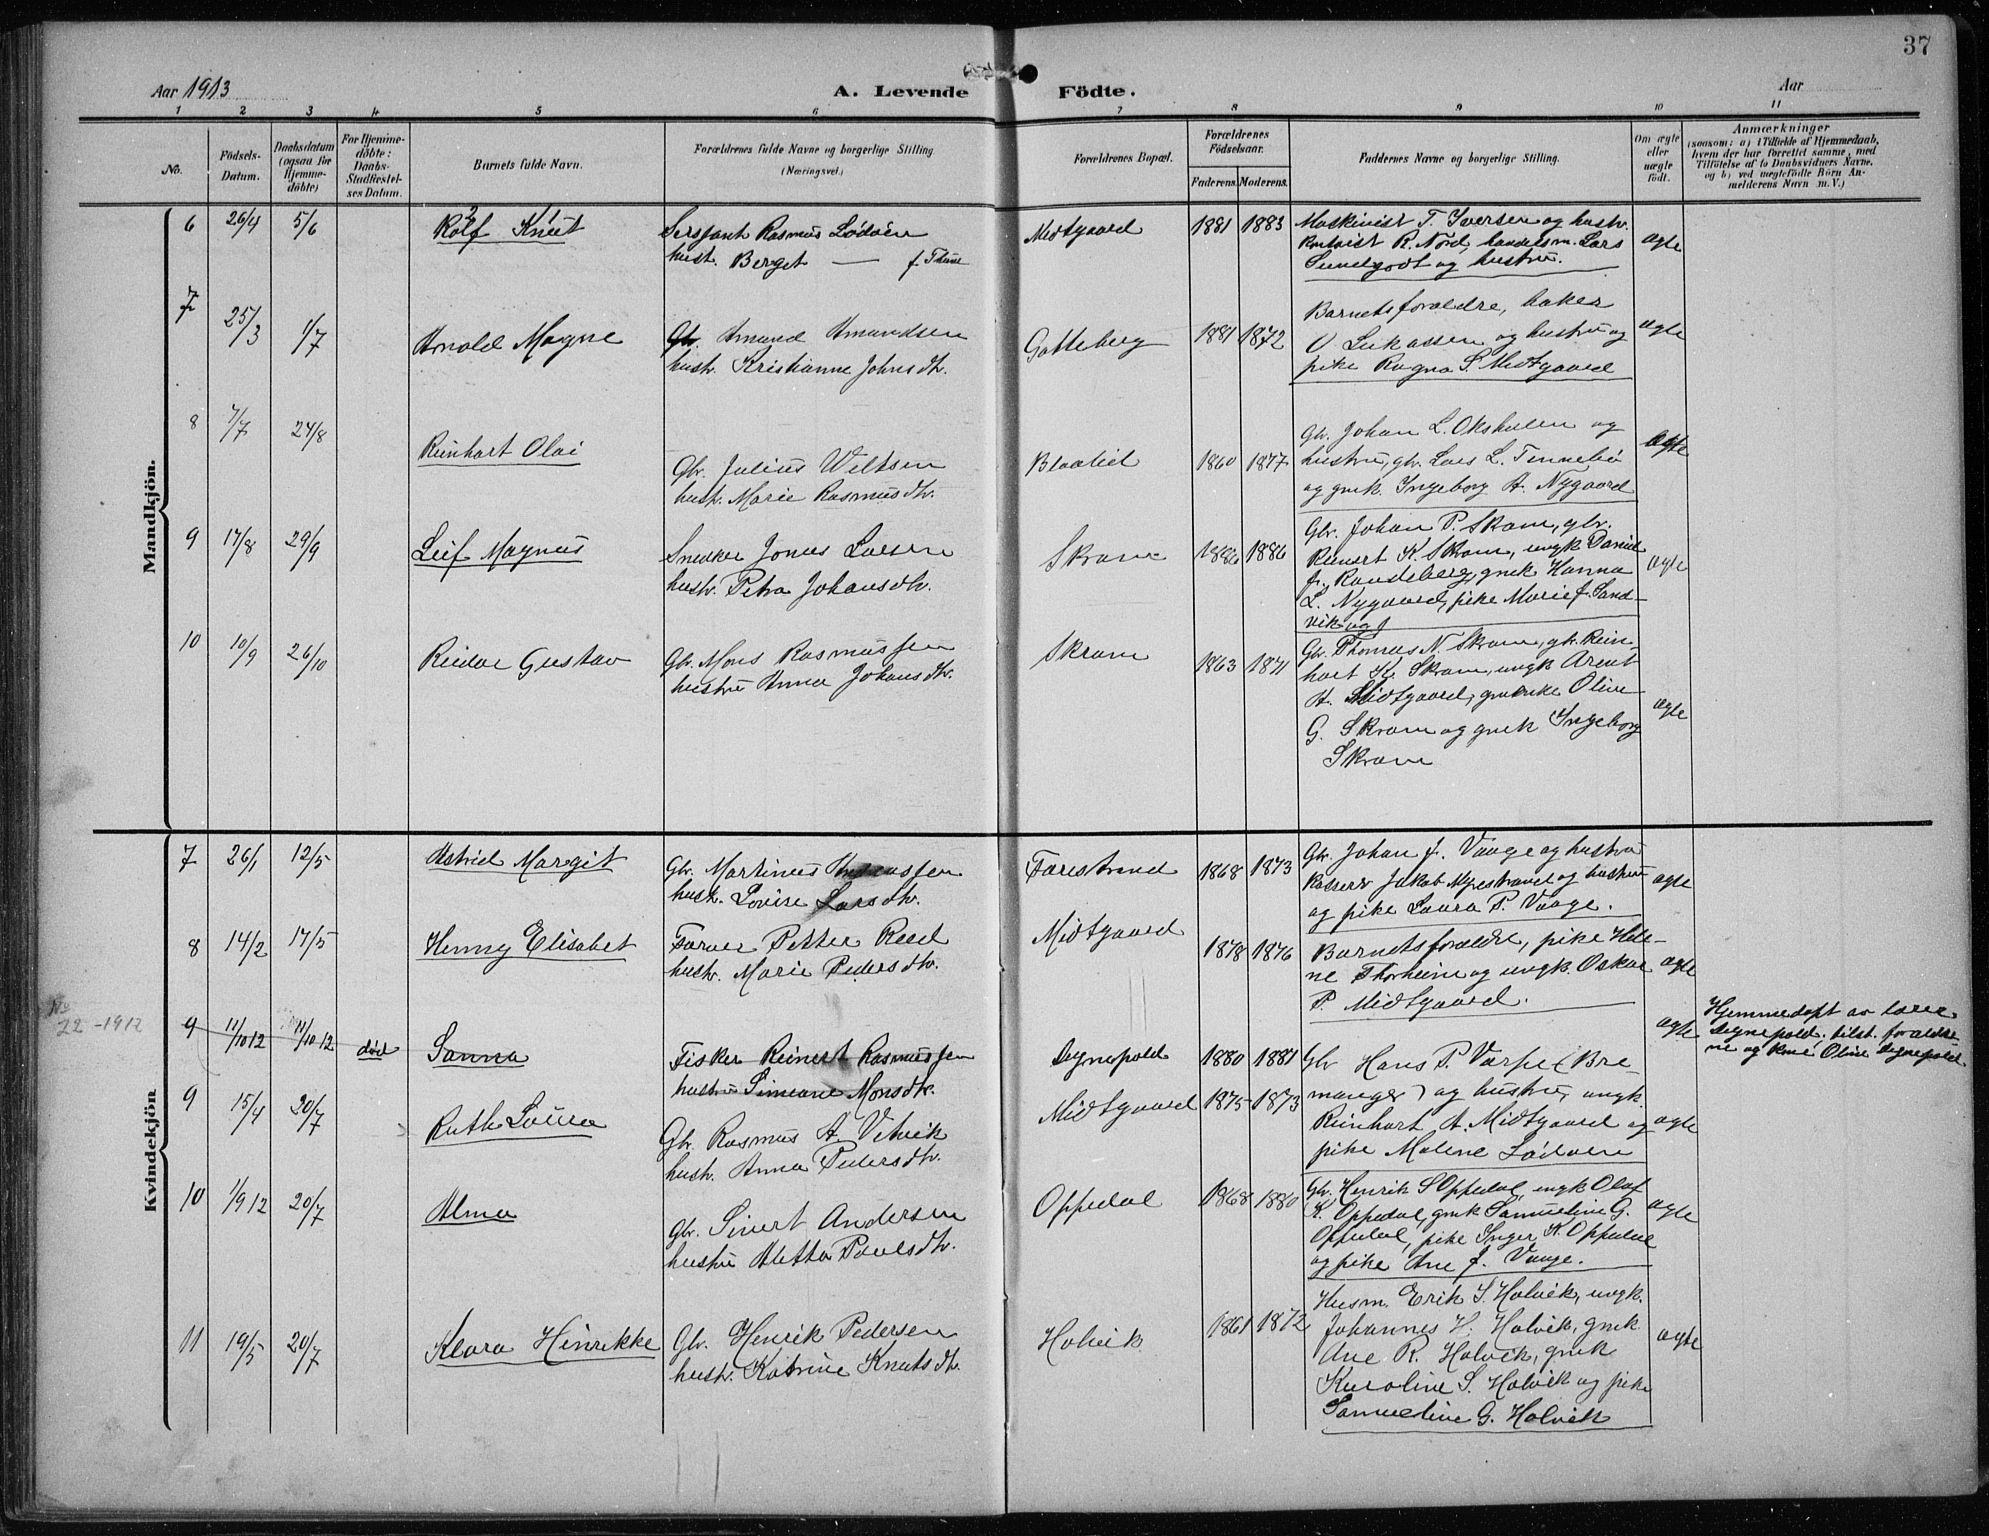 37
Aar 1913
A. Levende Födte.
Aar
1 2 3 4 5 6 7 8 9 10 11
No.
Födsels-Datum.
Daabsdatum (ogsaa for Hjemme-döbte)
For Hjemme-döbte: Daabs-Stadfæstel-ses Datum.
Barnets fulde Navn.
Forældrenes fulde Navne og borgerlige Stilling
(Næringsvei.)
Forældrenes Bopæl.
Forældrenes Födselsaar.
Faderens. Moderens.
Faddernes Navne og borgerlige Stilling.
Om ægte eller uægte födt.
Anmærkninger
(saasom: a) i Tilfælde af Hjemmedaab, hvem der har forrettet samme, med Tilföielse af to Daabsvidners Navne, og b) ved uægtefödte Börn An-melderens Navn m. V.)
Mandkjön.
6 26/4 5/6 Rolf Knut
2 1
Sersjant Rasmus Lödöen
hust. Berget — f. Thune
Midtgaard 1881 1883
Maskinist T. Iversen og hustr.
R. Nord, handelsm. Lars
Sundgodt og hustru.
ægte
7 25/3 1/7 Arnold Magne
Gbr. Amund Amundsen
hustr. Kristianne Johnsdtr.
Gotteberg 1881 1872
Barnets forældre, baker
O Lukassen og hustru og
pike Ragna S. Midtgaard
ægte
8 7/7 24/8 Reinhart Olai
Gbr. Julius Wiltsen
hustr. Marie Rasmusdtr.
Blaalid 1860 1877
Gbr. Johan L. Okshulen og
hustru, gbr. Lars L. Tennebö
og gmk. Ingeborg A. Nygaard
ægte
9 17/8 29/9 Leif Magnus
Snedker Jonas Larsen
hustr. Petra Johansdtr.
Skram 1886 1886
Gbr. Johan P. Skram, gbr.
Reinert K. Skram, ungk Daniel
J. Raudsberg, gmk Hanna
L. Nygaard, pike Marie J. Sand-
vik og f
ægte
10 10/9 26/10 Reidar Gustav
Gbr. Mons Rasmussen
hustru Anna Johansdtr.
Skram 1863 1871
Gbr. Thomas N. Skram, gbr. Rein-
hart K. Skram, ungk Arent
A. Midtgaard, Oline
G. Skram og gmk Ingeborg
Skram
ægte
Kvindekjön
7 26/1 12/5 Astrid Margit
Gbr. Martinus
hustr. Lovise Larsdtr.
Farestrand 1868 1873
Gbr. Johan J. Vaage og hustru
kasserer Jakob Myrestrand og hustru
og pike Laura P. Vaage.
ægte
8 14/2 17/5 Henny Elisabet
Farver Petter Reed
hustr. Marie Pedersdtr.
Midtgaard 1878 1876
Barnets forældre, pike Hele-
ne Thorheim og ungk. Oskar
P. Midtgaard.
ægte
No
22 - 1912
9 11/10 12 11/10 12 död Sanna
Fisker Reinert Rasmussen
hustru Simeane Monsdtr.
Degnepold 1880 1881
ægte
Hjemmedöpt av Lars
Degnepold, tilst. forældre-
ne og kone Oline Degnepold
9 15/4 20/7 Ruth Laura
Gbr. Rasmus A. Vetvik
hustr. Anna Pedersdtr.
Midtgaard 1875 1873
Gbr Hans P. Varpe (Bre-
manger) og hustru, ungk.
Reinhart A. Midtgaard og
pike Malene Lödöen
ægte
10 1/9 12 20/7 Alma
Gbr. Sivert Andersen
hustru Aletta Paulsdtr.
Oppedal 1868 1880
Gbr. Henrik S Oppedal, ungk Olaf
K. Oppedal, gmk Samueline G.
Oppedal, pike Inger K. Oppedal
og pike Ane J. Vaage.
ægte
11 19/5 20/7 Klara Hinrikke
Gbr. Henrik Pedersen
hustr. Katrine Knutsdtr.
Holvik 1861 1872
Husm. Erik S. Holvik, ungk.
Johannes H. Holvik, gmk
Ane R. Holvik, gmk
Karoline S. Holvik og pike
Samueline G. Holvik
ægte